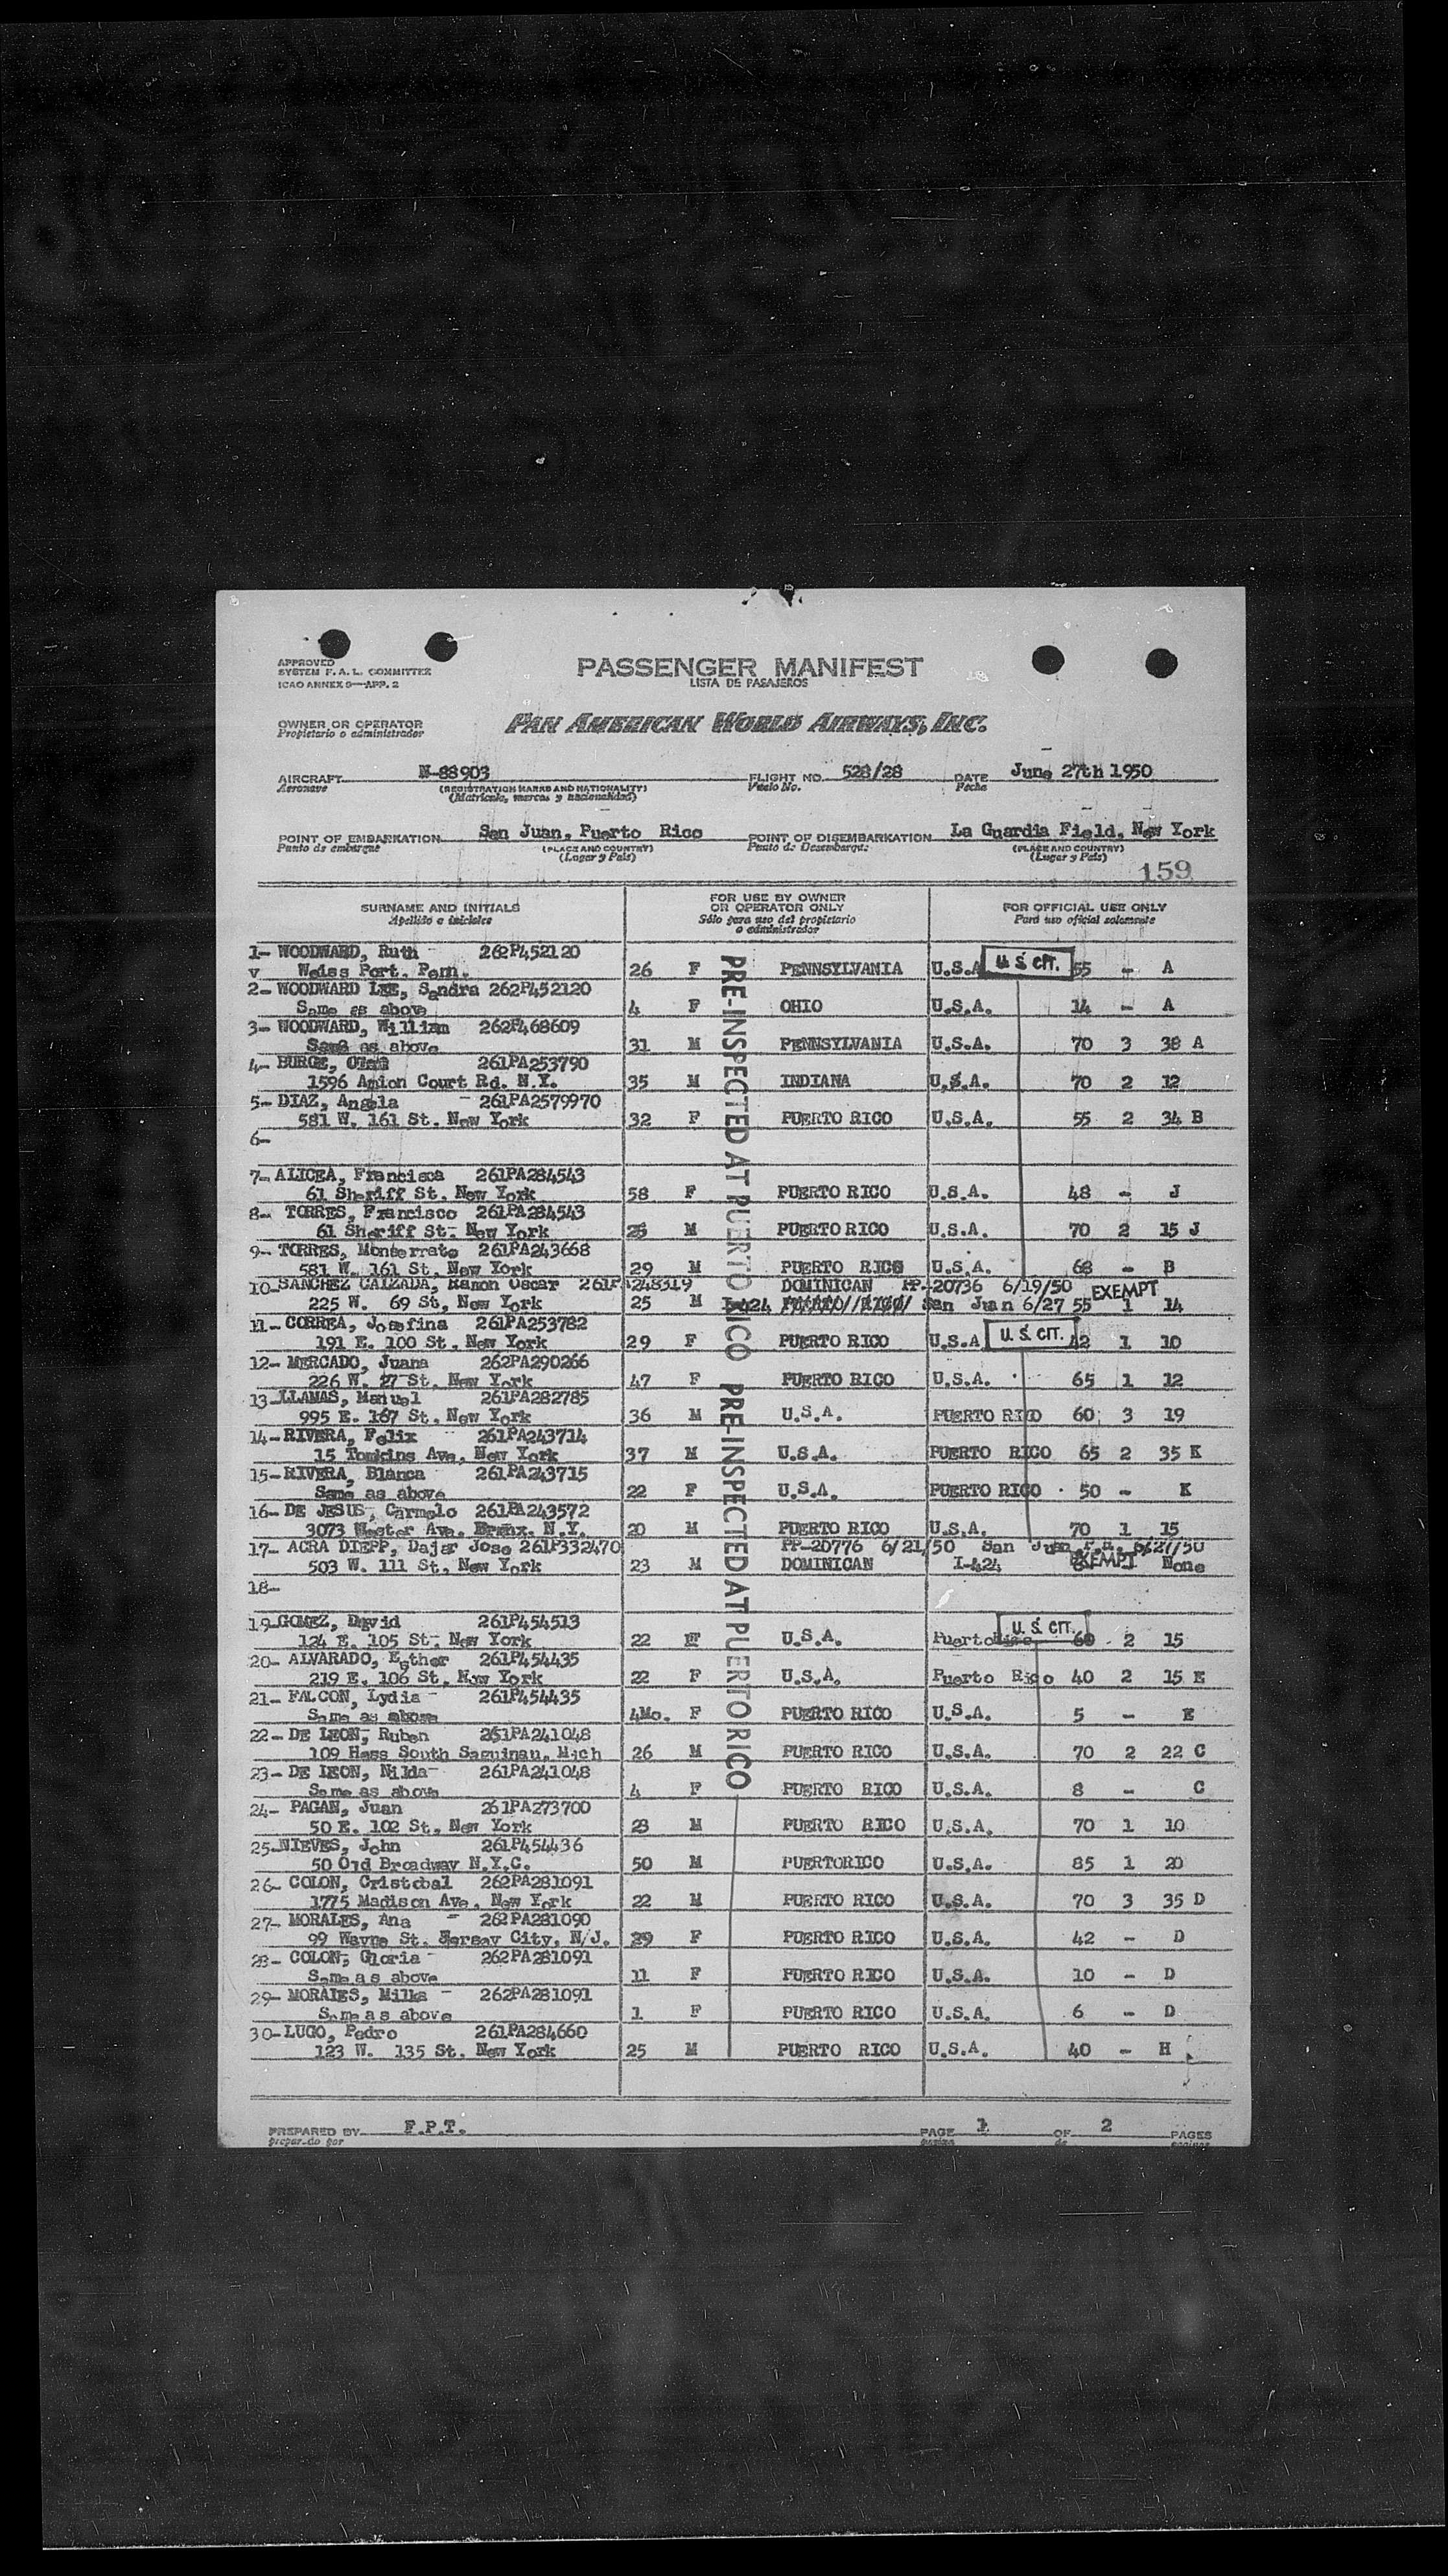 APPROVED
SYSTEM F.A.L. COMMITTEE
ICAO ANNEX 9—APP. 2
PASSENGER MANIFEST
LISTA DE PASAJEROS
OWNER OR OPERATOR
Propietario o administrador
PAN AMERICAN WORLD AIRWAYS, INC.
AIRCRAFT N-88903 FLIGHT NO. 528/28 DATE June 27th 1950
Aeronave (REGISTRATION MARKS AND NATIONALITY) Vuelo No. Fecha
(Matricula, marcas y nacionalidad)
POINT OF EMBARKATION San Juan, Puerto Rico POINT OF DISEMBARKATION La Guardia Field, New York
Punto de embarque (PLACE AND COUNTRY) Punto de Desembarque (PLACE AND COUNTRY)
(Lugar y País) (Lugar y País)
159
SURNAME AND INITIALS FOR USE BY OWNER OR OPERATOR ONLY FOR OFFICIAL USE ONLY
Apellido e iniciales Sólo para uso del propietario o administrador Para uso oficial solamente
PRE-INSPECTED AT PUERTO RICO PRE-INSPECTED AT PUERTO RICO
1- WOODWARD, Ruth - 262P452120
v Weiss Port. Penn. 26 F PENNSYLVANIA U.S.A U S CIT. 55 - A
2- WOODWARD LEE, Sandra 262P452120
Same as above 4 F OHIO U.S.A. 14 - A
3- WOODWARD, William 262P468609
Same as above 31 M PENNSYLVANIA U.S.A. 70 3 38 A
4- BURGE, 261PA253790
1596 Amion Court Rd. N.Y. 35 M INDIANA U.S.A. 70 2 12
5- DIAZ, Angela - 261PA2579970
581 W. 161 St. New York 32 F PUERTO RICO U.S.A. 55 2 34 B
6-
7- ALICEA, Francisca 261PA284543
61 Sheriff St. New York 58 F PUERTO RICO U.S.A. 48 - J
8- TORRES, Francisco 261PA284543
61 Sheriff St. New York 25 M PUERTO RICO U.S.A. 70 2 15 J
9- TORRES, Monserrate 261PA243668
581 W. 161 St. New York 29 M PUERTO RICO U.S.A. 68 - B
10-SANCHEZ CALZADA, Ramon Oscar 261PA248319 DOMINICAN PP-20736 6/19/50 EXEMPT
225 W. 69 St, New York 25 M I-424 PUERTO//RICO/ San Juan 6/27 55 1 14
11- CORREA, Josefina 261PA253782
191 E. 100 St. New York 29 F PUERTO RICO U.S.A U. S. CIT. 42 1 10
12- MERCADO, Juana 262PA290266
226 W. 27 St. New York 47 F PUERTO RICO U.S.A. 65 1 12
13-LLAMAS, Manuel 261PA282785
995 E. 167 St. New York 36 M U.S.A. PUERTO RICO 60 3 19
14-RIVERA, Felix 261PA243714
15 Tomkins Ave, New York 37 M U.S.A. PUERTO RICO 65 2 35 K
15-RIVERA, Blanca 261PA243715
Same as above 22 F U.S.A. PUERTO RICO 50 - K
16- DE JESUS, Carmelo 261PA243572
3073 Wester Ave. Bronx. N.Y. 20 M PUERTO RICO U.S.A. 70 1 15
17- ACRA DIEPP, Dajer Jose 261P332470 PP-20776 6/21/50 San Juan P.R. 6/27/50
503 W. 111 St, New York 23 M DOMINICAN I-424 EXEMPT None
18-
19-GOMEZ, David 261P454513
124 E. 105 St. New York 22 M U.S.A. Puerto Rico U. S. CIT. 60 2 15
20- ALVARADO, Esther 261P454435
219 E. 106 St. New York 22 F U.S.A. Puerto Rico 40 2 15 E
21- FALCON, Lydia - 261P454435
Same as above 4Mo. F PUERTO RICO U.S.A. 5 - E
22- DE LEON, Ruben 261PA241048
109 Hess South Saguinau, Mich 26 M PUERTO RICO U.S.A. 70 2 22 C
23- DE LEON, Nilda- 261PA241048
Same as above 4 F PUERTO RICO U.S.A. 8 - C
24- PAGAN, Juan 261PA273700
50 E. 102 St. New York 23 M PUERTO RICO U.S.A. 70 1 10
25-NIEVES, John 261P454436
50 Old Broadway N.Y.C. 50 M PUERTORICO U.S.A. 85 1 20
26- COLON, Cristobal 262PA281091
1775 Madison Ave. New York 22 M PUERTO RICO U.S.A. 70 3 35 D
27- MORALES, Ana - 262PA281090
99 Wayne St. Jersey City, N/J. 29 F PUERTO RICO U.S.A. 42 - D
28- COLON, Gloria - 262PA281091
Same as above 11 F PUERTO RICO U.S.A. 10 - D
29- MORALES, Milka - 262PA281091
Same as above 1 F PUERTO RICO U.S.A. 6 - D
30-LUGO, Pedro 261PA284660
123 W. 135 St. New York 25 M PUERTO RICO U.S.A. 40 - H
PREPARED BY F.P.T. PAGE 1 OF 2 PAGES
preparado por pagina de paginas